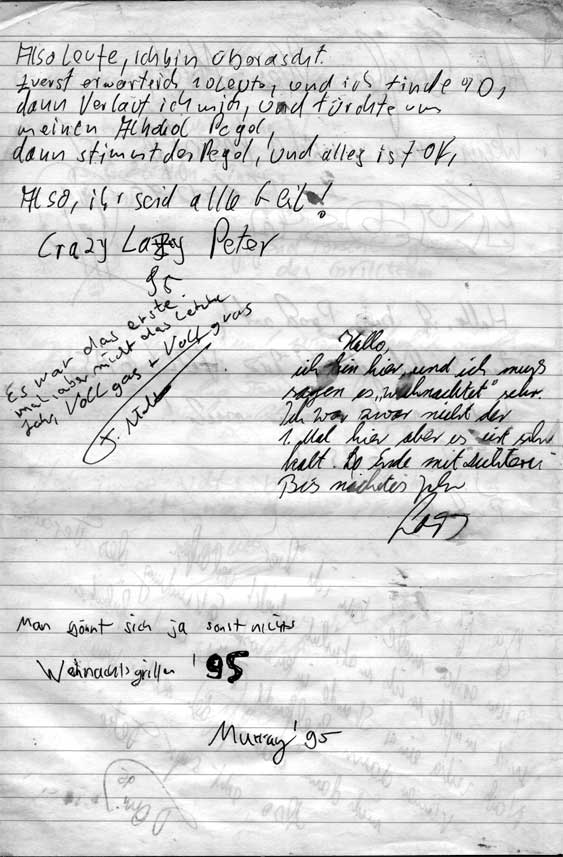 Also Leute, ich bin überascht.
Zuerst erwarte ich 20 Leute, und ich finde 90,
dann Verlauf ich mich, und fürchte um
meinen Alhohol Pegol,
dann stimmt der Pegol, und alles ist OK,
Also, ihr seid alle Geil!
Crazy Lazy Peter
95
Es war das erste
mal, aber nicht das Letzte
Jahr, Voll gas + Voll gras
Hallo,
ich bin hier und ich muss
sagen es „weihnachtet“ sehr.
Ich war zwar nicht der
1. Mal hier aber es ist sehr
kalt. Ende mit Dichterei
Bis nächstes Jahr
Man gönnt sich ja sonst nichts
Weihnachtsgrillen '95
Murray '95